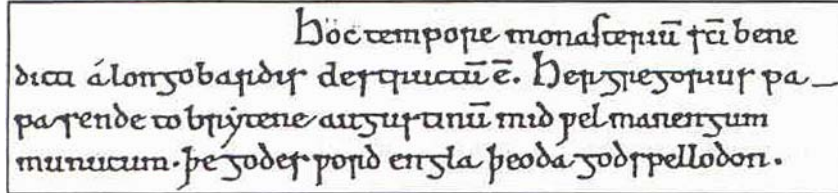 Hoc tempore monasteriū sc̄i bene
dicti á longobardis destructū ē. Her gregorius pa
pa sende to brẏtene augustinū mid ƿel manengum
munucum. þe godes ƿord engla þeoda godspellodon.